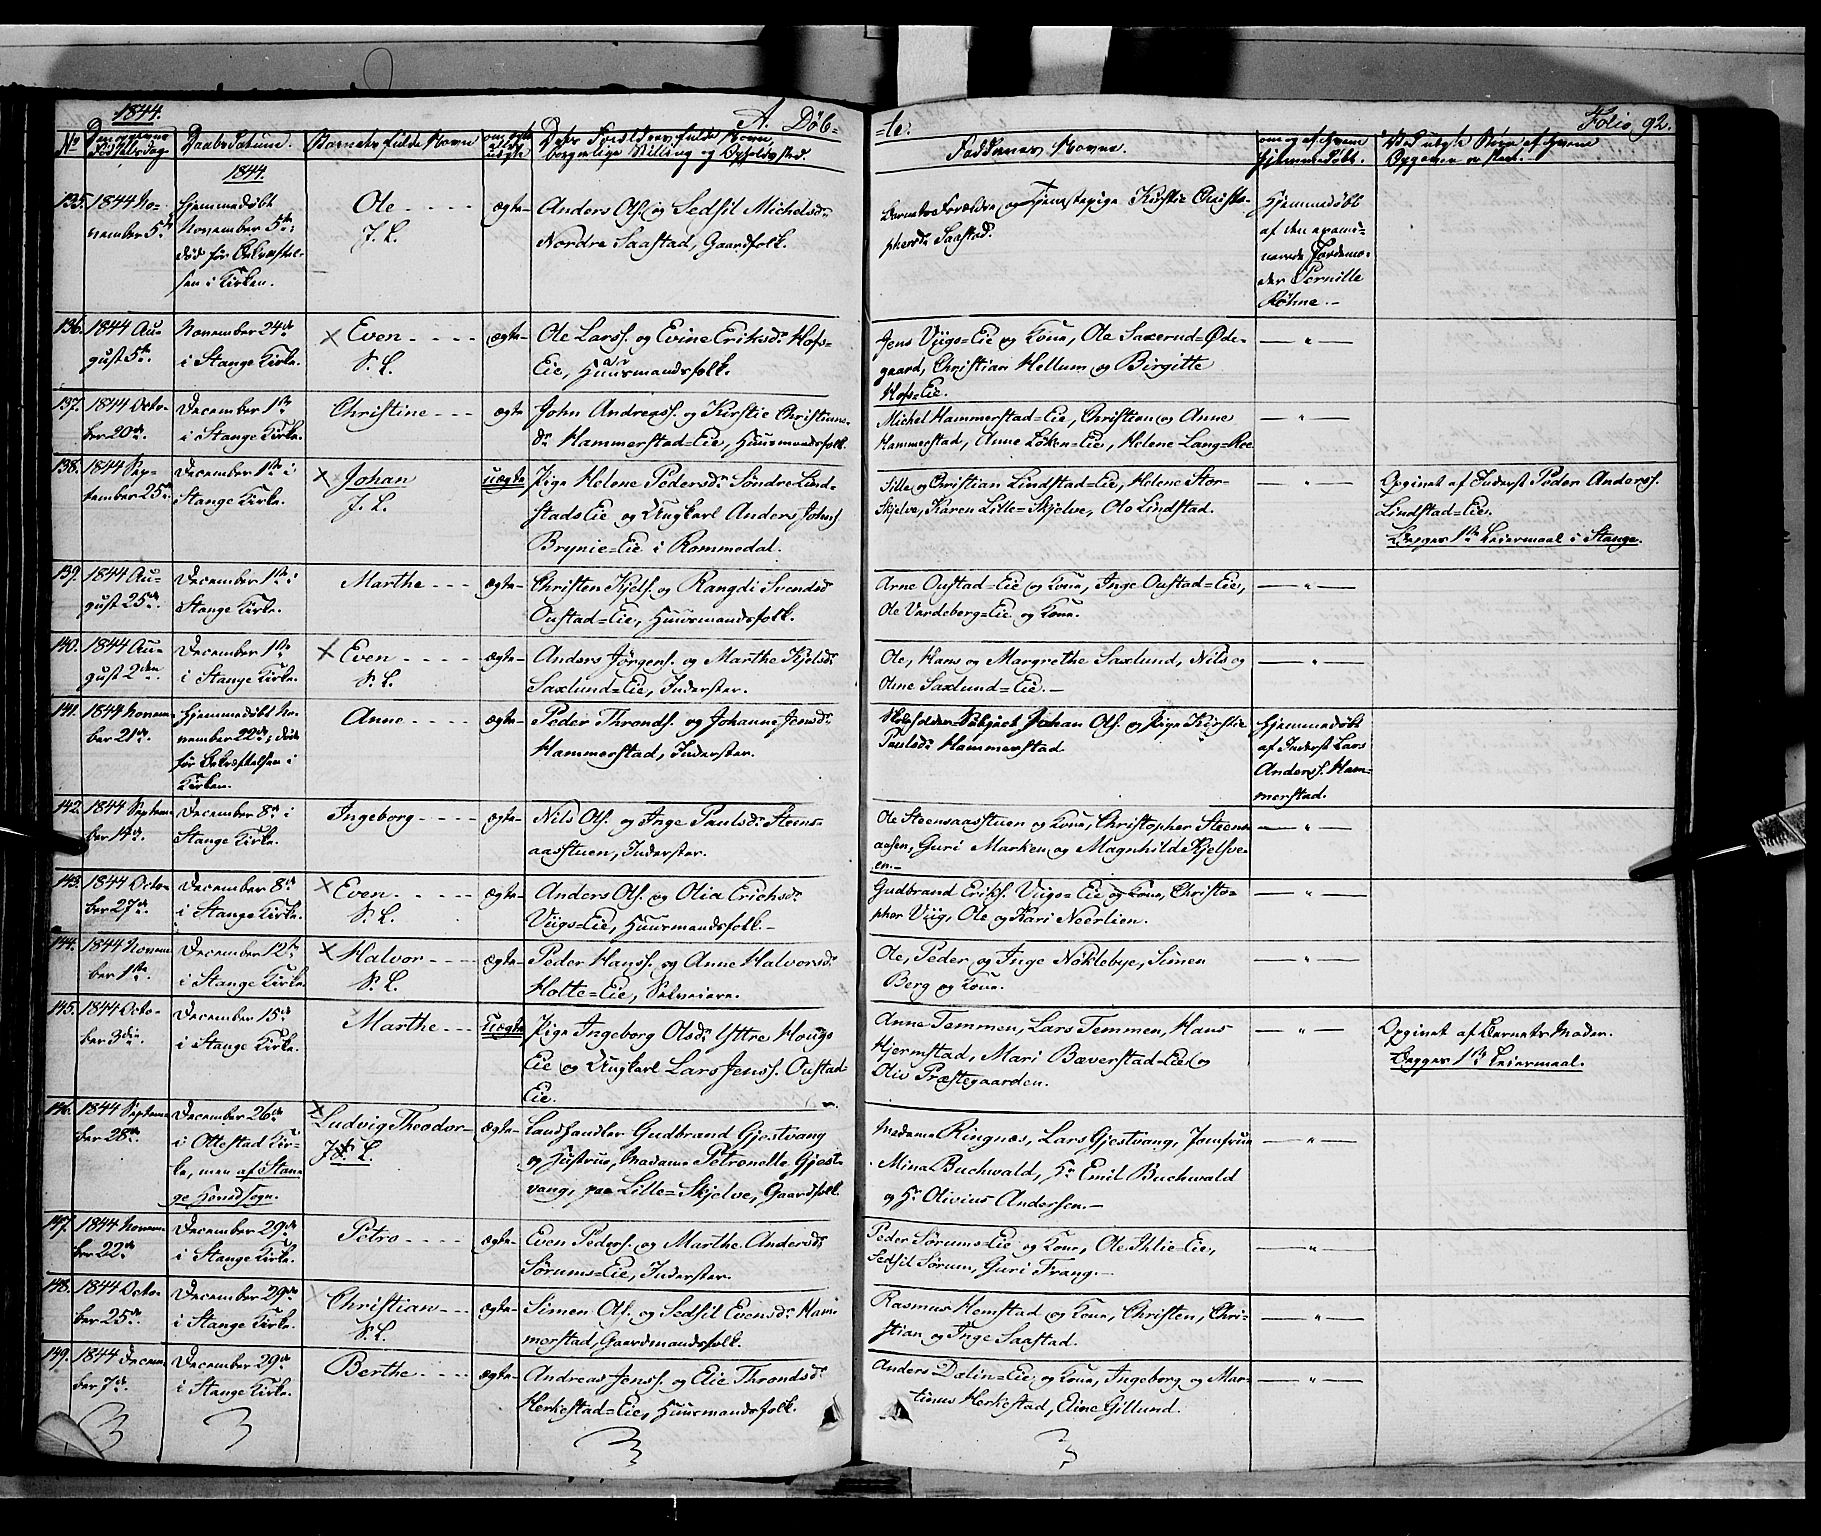 1844.
A. Døb-
-te.
Folio 92.
No
Den opgivne Fødselsdag
Daabs Datum.
Barnets fulde Navn
om ægte eller uægte
Dets Forældres fulde Navne
borgerlige Stilling og Opholdssted.
Faddernes Navne.
om og af hvem
hjemmedøbt.
Ved uægte Børn af hvem
Opgaven er skeet.
1844.
135.
1844 No-
vember 5te
Hjemmedøbt
November 5te;
død før Bekræftel-
sen i Kirken.
Ole
J. L.
ægte
Anders Ols. og Sedsil Michelsd.
Nordre Saastad, Gaardfolk.
Barnets Forældre og Tjenestepige Kirstie Christo-
phersd. Saastad.
Hjemmedøbt
af den exami-
nerede Jordemo-
der Pernille
Røhne.-
136.
1844 Au-
gust 5te.
November 24de
i Stange Kirke.
Even
S. L.
ægte
Ole Larss. og Evine Eriksd. Hofs-
Eie, Huusmandsfolk.
Jens Viigs=Eie og Kone, Ole Saxerud=Øde-
gaard, Christian Hellum og Birgitte
Hofs=Eie.
— " —
137.
1844 Octo-
ber 20de.
December 1ste
i Stange Kirke.
Christine
ægte
John Andreass. og Kirstie Christians-
d. Hammerstad=Eie, Huusmandsfolk.
Michel Hammerstad=Eie, Christian og Anne
Hammerstad, Anne Løken=Eie, Helene Lang=Roe
— " —
138.
1844 Sep-
tember 25de
December 1ste i
Stange Kirke.
Johan
J. L.
uægte
Pige Helene Pedersd. Søndre Lind-
stads Eie og Ungkarl Anders Johns.
Brynie=Eie i Rommedal.
Sille og Christian Lindstad=Eie, Helene Stor-
Skjelve, Karen Lille=Skjelve, Ole Lindstad.
— " —
Opgivet af Inderst Peder Anderss.
Lindstad=Eie.
Begges 1ste Leiermaal i Stange.
139.
1844 Au-
gust 25de.
December 1ste i
Stange Kirke.
Marthe
ægte
Christen Kjels. og Rangdi Svendsd
Oustad=Eie, Huusmandsfolk.
Arne Oustad=Eie og Kone, Inge Oustad=Eie,
Ole Vardeberg=Eie og Kone.
— " —
140.
1844 Au-
gust 2den.
December 1ste
i Stange Kirke.
Even
S. L.
ægte
Anders Jørgens. og Marthe Kjelsd.
Saxlund=Eie, Inderster.
Ole, Hans og Margrethe Saxlund, Nils og
Olene Saxlund=Eie.-
— " —
141.
1844 Novem-
ber 21de.
Hjemmedøbt No-
vember 22de; døde
før Bekræftelsen i
Kirken.
Anne
ægte
Peder Thronds. og Johanne Jensd.
Hammerstad, Inderster.
Johan Ols. og Pige Kirstie
Paulsd. Hammerstad.
Hjemmedøbt
af Inderst Lars
Anders. Ham-
merstad.
142.
1844 Septem-
ber 14de.
December 8de i
Stange Kirke.
Ingeborg
ægte
Nils Ols. og Inge Paulsd. Steens-
aasstuen, Inderster.
Ole Steensaasstuen og Kone, Christopher Steens-
aasen, Guri Marken og Magnhild Kjelsve-
en.-
— " —
143.
1844 Octo-
ber 27de.
December 8de
i Stange Kirke.
Even
S. L.
ægte
Anders Ols. og Olia Erichsd.
Viigs=Eie, Huusmandsfolk.-
Gudbrand Eriks. Viigs=Eie og Kone, Christo-
pher Viig, Ole og Kari Neerlien.
— " —
144.
1844 Novem-
ber 1ste.
December 12te
i Stange Kirke
Halvor
S. L.
ægte
Peder Hanss. og Anne Halvorsd.
Holte=Eie, Selveiere.
Ole, Peder og Inge Nøklebye, Simen
Berg og Kone.
— " —
145.
1844 Octo-
ber 3die.
December 15de
i Stange Kirke.
Marthe
uægte
Pige Ingeborg Olsd. Yttre Hougs
Eie og Ungkarl Lars Jenss. Oustad-
Eie.
Anne Temmen, Lars Temmen, Hans
Hjermstad, Mari Bæverstad=Eie og
Oliv Præstegaarden.
— " —
Opgivet af Barnets Moder.
Begges 1ste Leiermaal.
146.
1844 Septem-
ber 28de.
December 26de
i Ottestad Kir-
ke, men af Stan-
ge Hovedsogn.
Ludvig Theodor
J. S. L.
ægte
Landhandler Gudbrand Gjestvang
og Hustrue, Madame Petronelle Gjest-
vang, paa Lille=Skjelve, Gaardfolk.
Madame Ringnæs, Lars Gjestvang, Jomfrue
Mina Buchwald, Hr Emil Buchwald
og Hr. Olivius Andersen.-
— " —
147.
1844 Novem-
ber 22de
December 29de
i Stange Kirke.
Petro
ægte
Even Peders. og Marthe Andersd.
Sørums=Eie, Inderster.
Peder Sørums=Eie og Kone, Ole Ihlie=Eie,
Sedsil Sørum, Guri Frang.-
— " —
148.
1844 Octo-
ber 25de
December 29de
i Stange Kirke.
Christian
S. L.
ægte
Simen Ols. og Sedsil Evensd. Ham-
merstad, Gaardmandsfolk.
Rasmus Hemstad og Kone, Christen, Chri-
stian og Inge Saastad.
— " —
149.
1844 Decem-
ber 7de.
December 29de
i Stange Kirke.
Berthe
ægte
Andreas Jenss. og Elie Throndsd.
Herkestad=Eie, Huusmandsfolk.
Anders Dælin=Eie og Kone, Ingeborg og Mar-
tinus Herkestad, Eline Gillund.
— " —